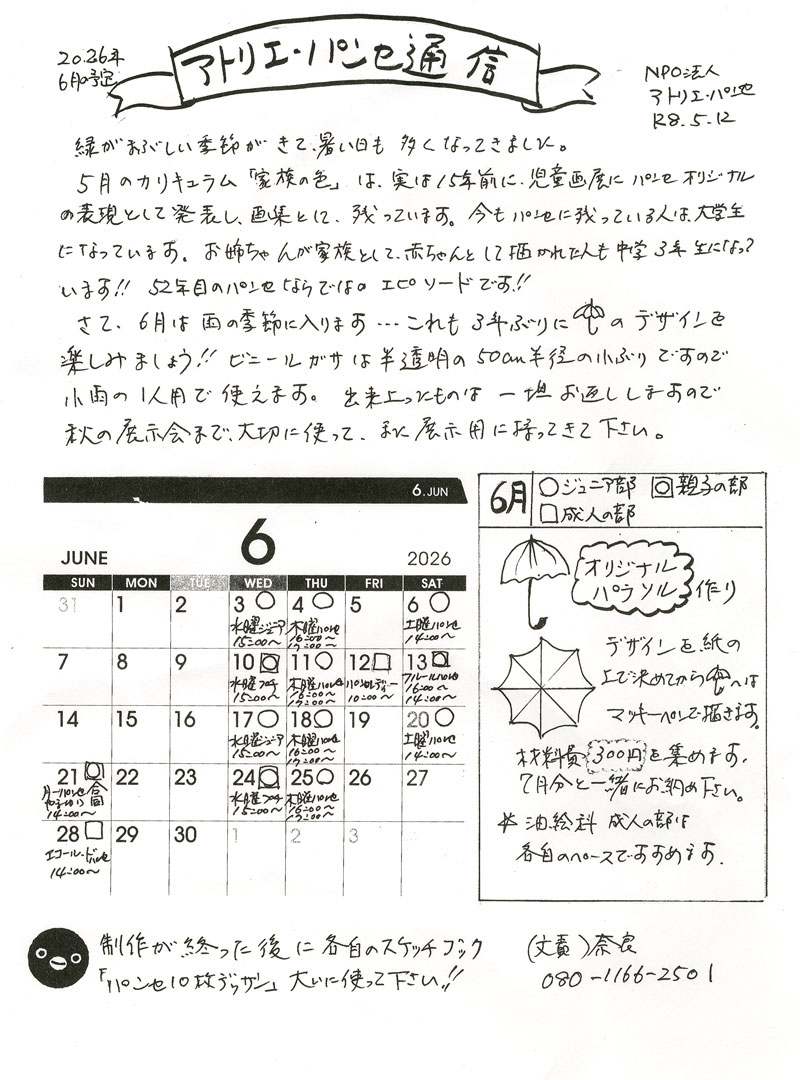 2026年
6月の予定
アトリエ・パンセ通信
NPO法人
アトリエ・パンセ
R8.5.12
緑がまぶしい季節がきて、暑い日も多くなってきました。
5月のカリキュラム「家族の色」は、実は15年前に、児童画展にパンセオリジナル
の表現として発表し、画集として、残っています。今もパンセに残っている人は、大学生
になっています。お姉ちゃんが家族として、赤ちゃんとして描かれた人も中学3年生になって
います!! 52年目のパンセならではのエピソードです!!
さて、6月は雨の季節に入ります…これも3年ぶりにのデザインを
楽しみましょう!! ビニールガサは半透明の50cm半径の小ぶりですので
小雨の1人用で使えます。出来上ったものは一担お返ししますので
秋の展示会まで、大切に使って、また展示用に持ってきて下さい。
6.JUN
6
JUNE 2026
SUN MON TUE WED THU FRI SAT
31 1 2 3 4 5 6
水曜ジュニア 15:00〜 木曜パンセ 16:00〜 17:00〜 土曜パンセ 14:00〜
7 8 9 10 11 12 13
水曜プチ 15:00〜 木曜パンセ 16:00〜 17:00〜 パンセレディー 10:00〜 フルールパンセ 16:00〜 14:00〜
14 15 16 17 18 19 20
水曜ジュニア 15:00〜 木曜パンセ 16:00〜 17:00〜 土曜パンセ 14:00〜
21 22 23 24 25 26 27
合同 14:00〜 水曜プチ 15:00〜 木曜パンセ 16:00〜 17:00〜
28 29 30 1 2 3
エコール・ド・パンセ 14:00〜
6月 ○ジュニア部 親子の部
□成人の部
オリジナル
パラソル作り
デザインを紙の
上で決めてからへは
マッキーペンで描きます。
材料費300円を集めます。
7月分と一緒にお納め下さい。
* 油絵科 成人の部は
各自のペースですすめます.
制作が終った後に各自のスケッチブック
「パンセ10枚デッサン」大いに使って下さい!!
(文責)奈良
080-1166-2501